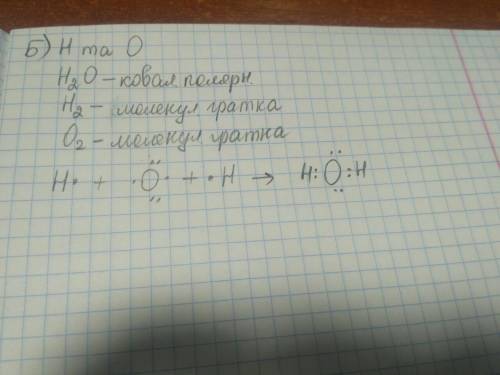 Б) H та O
H₂O – ковал полярн.
H₂ – молекул гратка
O₂ – молекул гратка
H· + ·Ö̤· + ·H → H:Ö̤:H